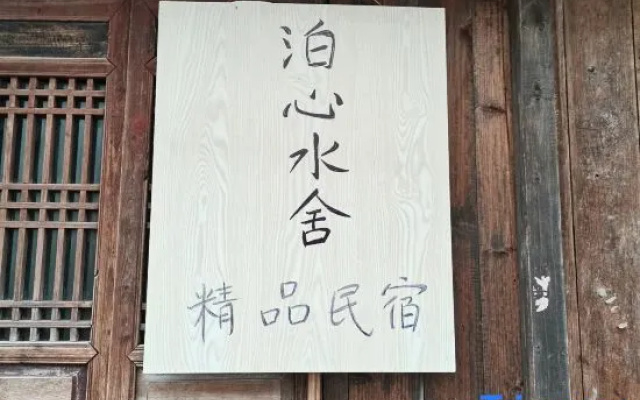 泊心水舍
精品民宿